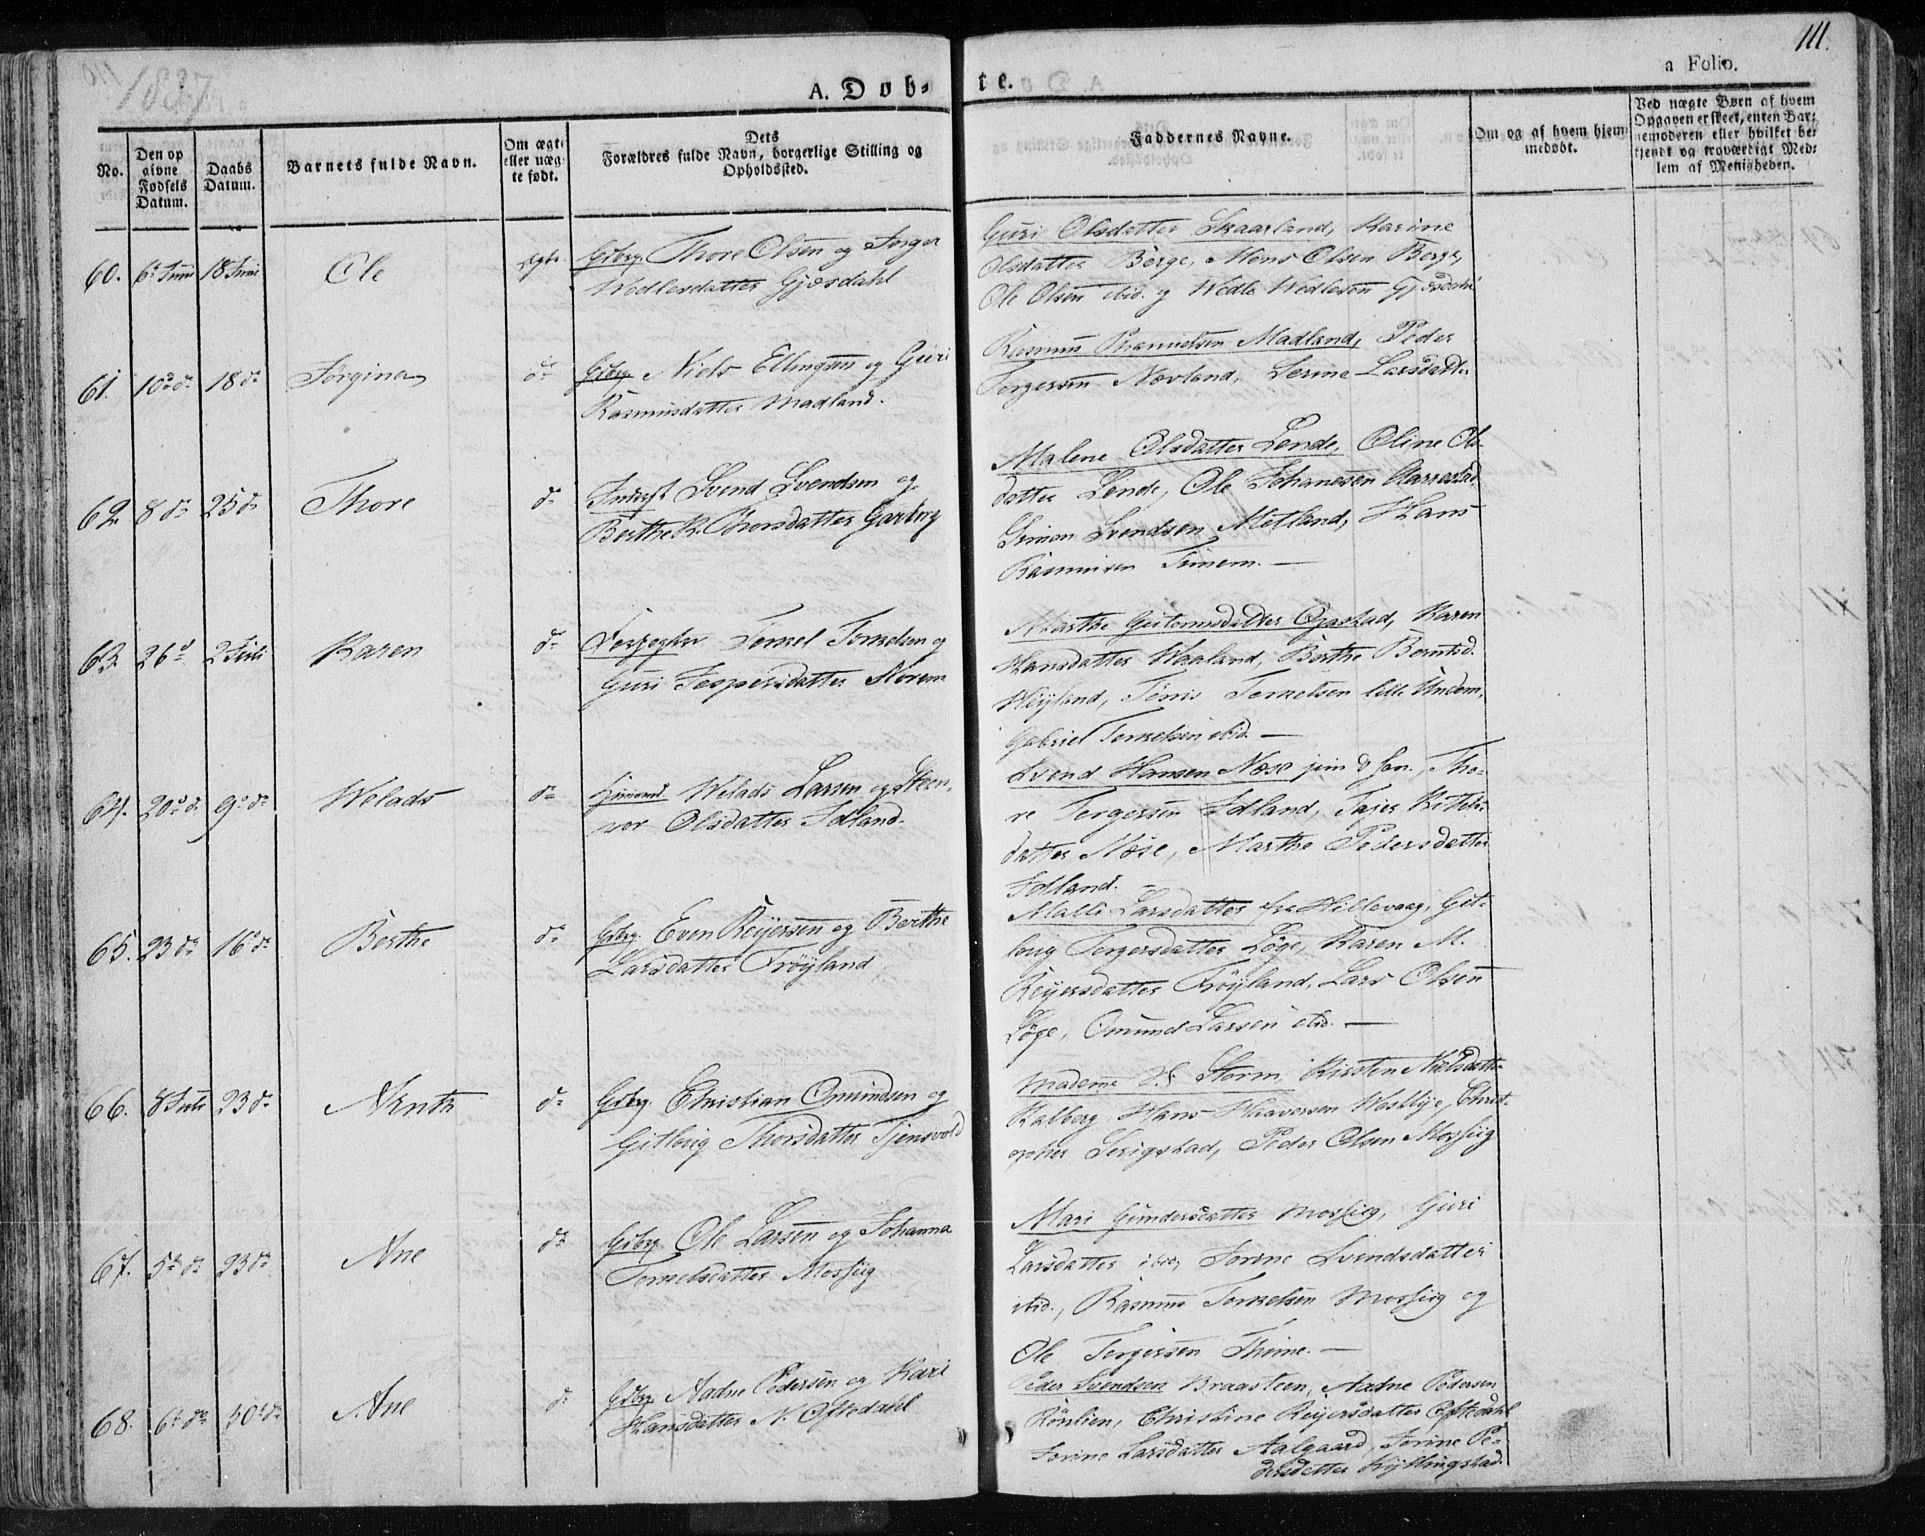 1837
111.
A. Døb-
te.
a Folio.
No.
Den op
givne
Fødsels
Datum.
Daabs
Datum.
Barnets fulde Navn.
Om ægte
eller uæg-
te født.
Dets
Forældres fulde Navn, borgerlige Stilling og
Opholdssted.
Faddernes Navne.
Om og af hvem hjem-
medøbt.
Ved uægte Børn af hvem
Opgaven er skeet, enten Bar-
nemoderen eller hvilket be-
kjendt og troværdigt Med-
lem af Menigheden.
60. 6 Juni 18 Juni Ole ægte Gbrg Thore Olsen og Inger
Wedlesdatter Gjøsdahl
Guri Olsdatter Skaarland, Karine
Olsdatter Berge, Mons Olsen Berge,
Ole Olsen ibid. og Wedle Wedlesen Gjøsdahl
61. 10 d 18 d Jorgine d Gbrg Niels Ellingsen og Guri
Rasmusdatter Madland.
Rasmus Madland, Peder
Torgersen Nevland, Serine Larsdatter
62. 8 d 25 d Thore d Inderst Svend Svendsen og
Berthe K. Thorsdatter Garborg
Malene Olsdatter Lende, Oline Ols-
datter Lende, Ole Johanesen Aarrestad
Simon Svendsen Metland, Hans
Rasmusen Timem. —
63. 26 d 2 Juli Karen d Torkel Torkelsen og
Guri Jespersdatter Norem
Marthe Guttormsdatter Opstad, Karen
Hansdatter Waaland, Berthe Berntsd.
Høyland, Tønis Torkelsen lille Undem,
Gabriel Torkelsen ibid. —
64. 20 d 9 d Welads d Huusmd Welads Larsen og Steen-
vor Olsdatter Idland.
Svend Hansen Næse jun & sen., Tho-
re Torgersen Idland, Tajer Kittels-
datter Næse, Marthe Pedersdatter
Idland. —
65. 23 d 16 d Berthe d Gbrg. Even Reijersen og Berthe
Larsdatter Frøyland
Malli Larsdatter fra Hillevaag, Git-
lovig Torgersdatter Løge, Karen M.
Reijersdatter Frøyland, Lars Olsen
Løge, Omund Larsen ibid. —
66. 8 Juli 23 d d Gbrg Christian Omundsen og
Gitlovig Thorsdatter Tjensvold
Madame Storm, Kirsten Nielsdatt-
Kalberg, Hans Haaversen Westlye, Christ-
opher Serigstad, Peder Olsen Mossiig
67. 5 d 23 d Ane d Gbrg. Ole Larsen og Johanna
Torkelsdatter Mossiig
Mari Gundersdatter Mossiig, Guri
Larsdatter ibid, Sorine Svendsdatter
ibid., Rasmus Torkelsen Mossiig og
Ole Torgersen Thime. —
68. 6 d 30 d Ane d Gbrg Aadne Pedersen og Kari
Hansdatter N. Oftedahl
Peder Svendsen Braasteen, Aadne Pedersen
Rønlien, Christine Reijersdatter Oftedahl
Sorine Larsdatter Aalgaard, Sorine Pe-
dersdatter Kyllingstad.